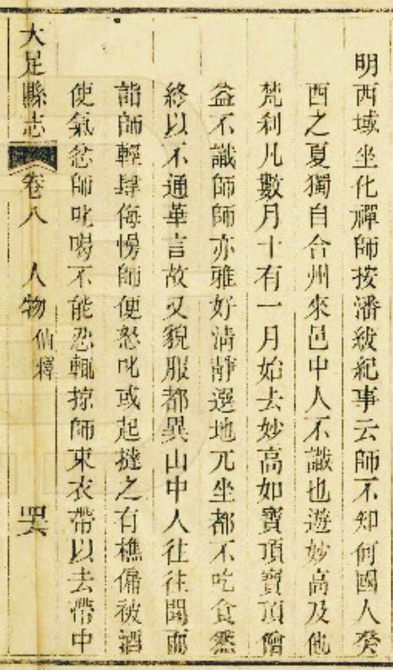 明西域坐化禪師按潘紱紀事云師不知何國人癸
酉之夏獨自合州來邑中人不識也遊妙高及他
梵刹凡數月十有一月始去妙高如寶頂寶頂僧
益不識師師亦雅好淸靜選地兀坐都不吃食然
終以不通華言故又貌服都異山中人往往鬨而
詬師輕肆侮慢師便怒叱或起撻之有樵傭被酒
使氣忿師叱喝不能忍輒掠師束衣帶以去帶中
大足縣志 卷八 人物 仙釋